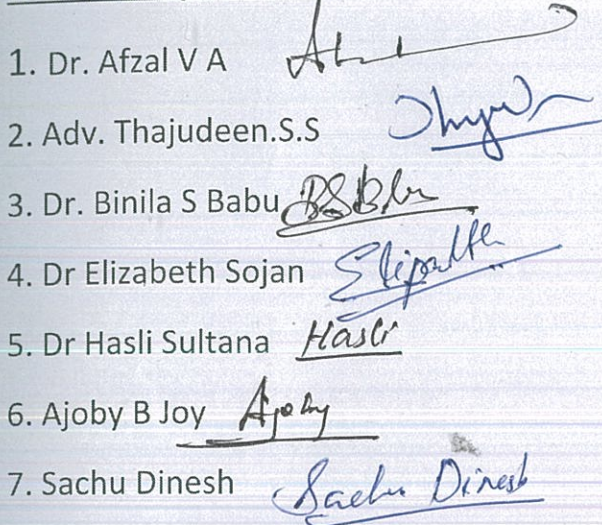 1. Dr. Afzal V A
2. Adv. Thajudeen.S.S
3. Dr. Binila S Babu
4. Dr Elizabeth Sojan
5. Dr Hasli Sultana Hasli
6. Ajoby B Joy Ajoby
7. Sachu Dinesh Sachu Dinesh